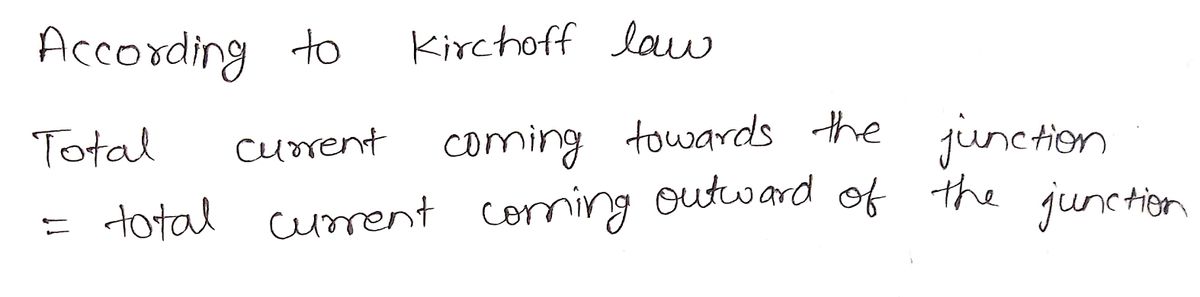 According to Kirchoff law
Total current coming towards the junction
= total current coming outward of the junction